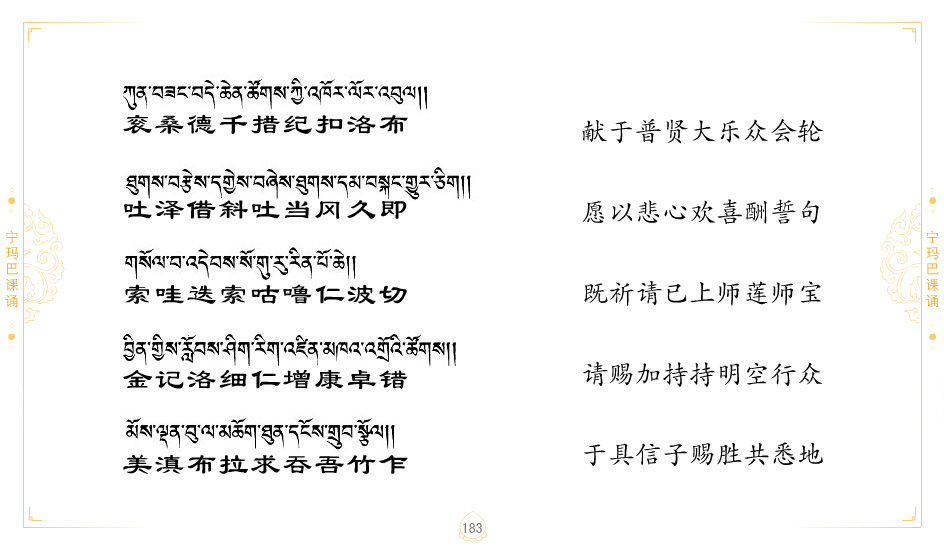 ཀུན་བཟང་བདེ་ཆེན་ཚོགས་ཀྱི་འཁོར་ལོར་འབུལ།།
衮桑德千措纪扣洛布
献于普贤大乐众会轮
ཐུགས་བརྩེས་དགྱེས་བཞེས་ཐུགས་དམ་བསྐང་གྱུར་ཅིག།།
吐泽借斜吐当冈久即
愿以悲心欢喜酬誓句
གསོལ་བ་འདེབས་སོ་གུ་རུ་རིན་པོ་ཆེ།།
索哇迭索咕噜仁波切
既祈请已上师莲师宝
བྱིན་གྱིས་རློབས་ཤིག་རིག་འཛིན་མཁའ་འགྲོའི་ཚོགས།།
金记洛细仁增康卓错
请赐加持持明空行众
མོས་ལྡན་བུ་ལ་མཆོག་ཐུན་དངོས་གྲུབ་སྩོལ།།
美滇布拉求吞吾竹乍
于具信子赐胜共悉地
宁玛巴课诵
宁玛巴课诵
183